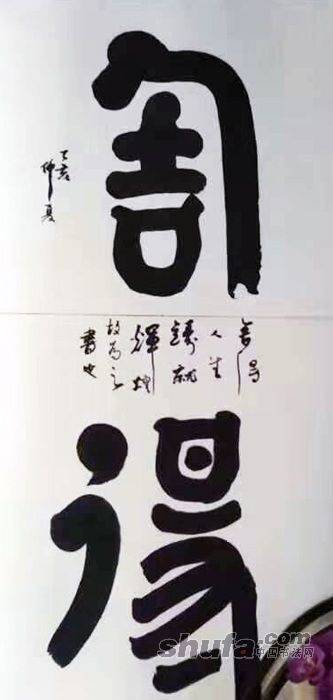 舍
得
舍得
人生
铸就
輝煌
故为之
書也
亥
仲夏
shufa.com
中国书法网